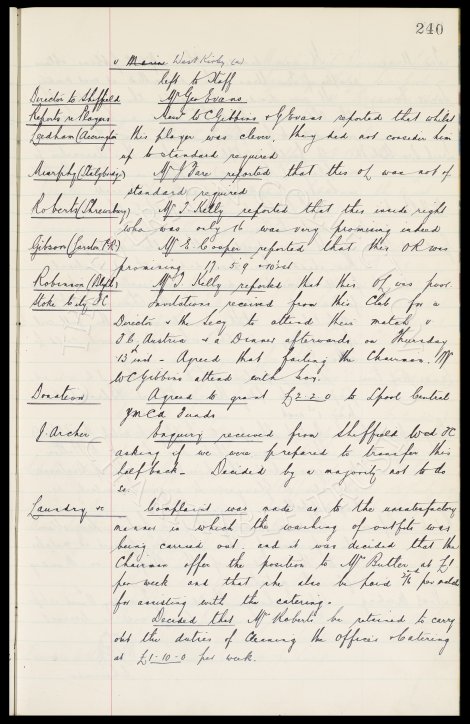 240
v Marine West Kirby (a)
Left to Staff
Director to Sheffield Mr Geo Evans
Reports re Players Messrs W C Gibbins & G Evans reported that whilst
Leedham (Accrington) this player was clever, they did not consider him
up to standard required
Murphy (Stalybridge) Mr J Fare reported that this OL was not of
standard required
Roberts (Shrewsbury) Mr T Kelly reported that this inside right
who was only 16 was very promising indeed
Gibson (Garston P.R.) Mr E Cooper reported that this OR was
promising 19. 5'9" 10st
Robinson (Blyth) Mr T Kelly reported that this OL was poor.
Stoke City FC Invitations received from this Club for a
Director & the Secy to attend their match v
F.C. Austria & a Dinner afterwards on Thursday
13th inst - Agreed that failing the Chairman, Mr
W C Gibbins attend with Secy.
Donation Agreed to grant £2-2-0 to Lpool Central
YMCA Funds
J. Archer Enquiry received from Sheffield Wed FC
asking if we were prepared to transfer this
half back - Decided by a majority not to do
so.
Laundry &c Complaint was made as to the unsatisfactory
manner in which the washing of outfits was
being carried out, and it was decided that the
Chairman offer the position to Mrs Butler at £1
per week and that she also be paid 2/6 per match
for assisting with the catering.
Decided that Mrs Roberts be retained to carry
out the duties of Cleaning the Offices & Catering
at £1-10-0 per week.